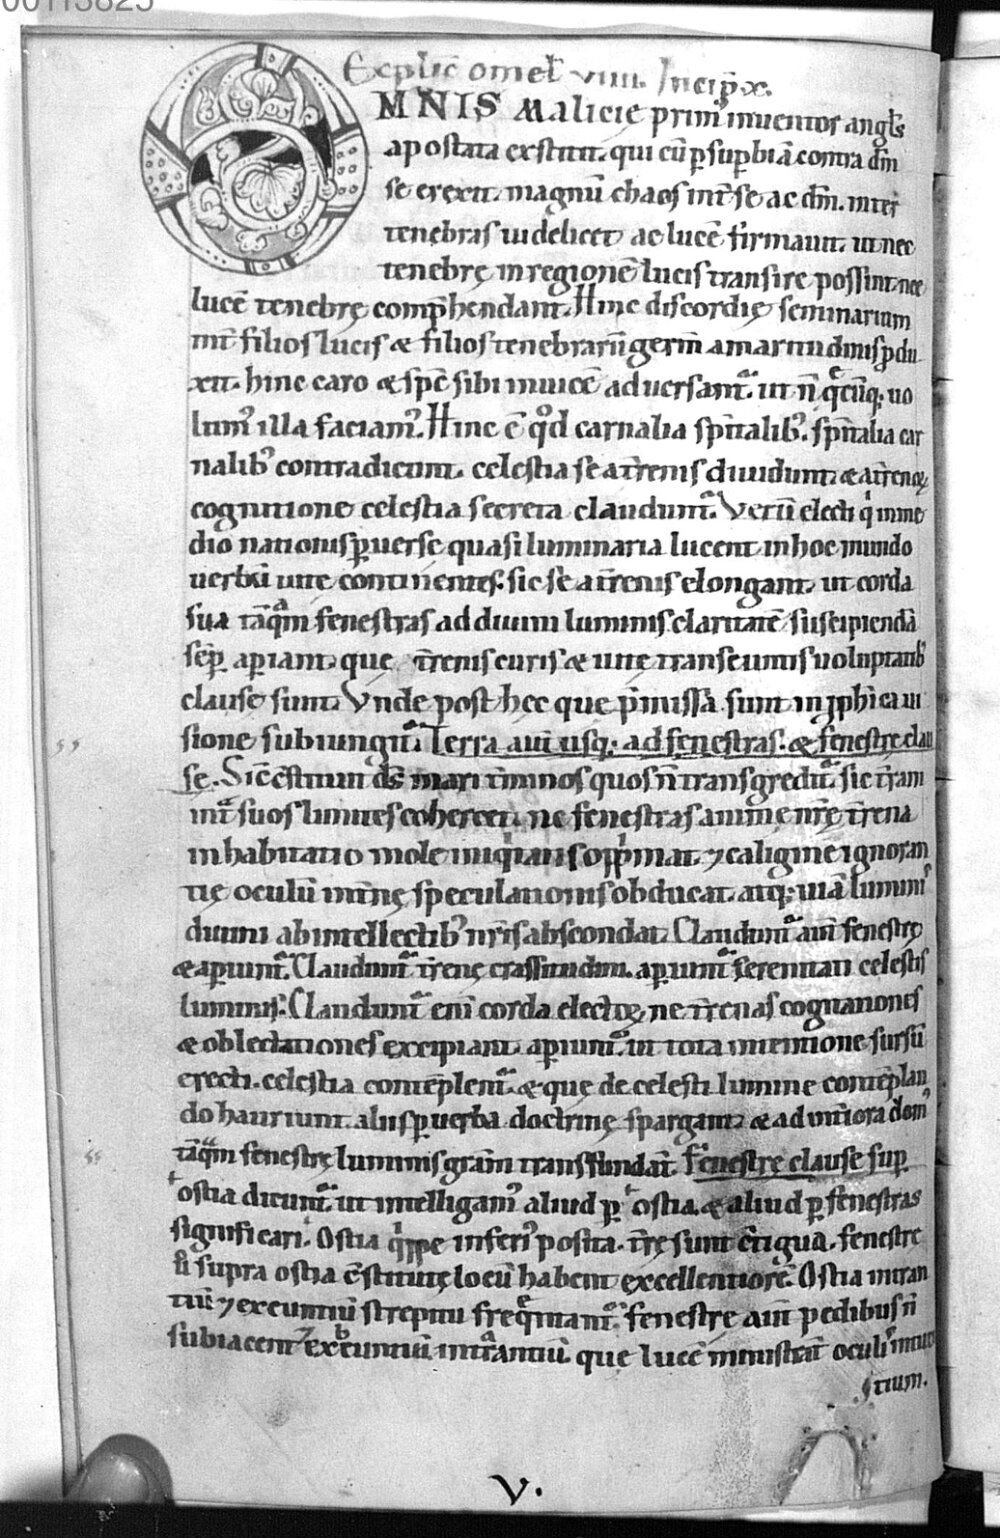 00113825
Explic̄ omel̄ viiii. Incip̄ .x.
OMNIS Malicie primꝰ inuentor angl̄s
apostata exstitit. qui cū p̱ sup̱biā contra dm̄
se erexit. magnū chaos int̄ se ac dm̄. inter
tenebras uidelicet ac lucē firmauit. ut nec
tenebrę in regionē lucis transire possint. nec
lucē tenebrę comp̄hendant. Hinc discordię seminarium
int̄ filios lucis & filios tenebrarū germ̄ amaritudinis ꝓdu
xit. hinc caro & sp̄c sibi inuicē aduersant᷑. ut n̄ q̄cūq; uo
lumꝰ illa faciamꝰ. Hinc ē qd̄ carnalia sp̄italibꝰ. sp̄italia car
nalibꝰ contradicunt. celestia se a t̄renis diuidunt. & a t̄renoꝝ
cognitione celestia secreta claudunt᷑. Verū electi q' in me
dio nationis p̱uerse quasi luminaria lucent in hoc mundo
uerbū uite continentes. sic se a t̄renis elongant. ut corda
sua tāqͣm fenestras ad diuini luminis claritatē suscipiendā
sēp̱ ap̱iant. que t̄renis curis & uitę transeuntis uoluptatibꝰ
clause sunt. Vnde post hec que p̄missa sunt in ꝓph̄ica ui
sione subiungit᷑. Terra aut̄ usq; ad fenestras. & fenestre clau
se. Sic c̄stituit dś mari t̄minos quos n̄ transgredit᷑. sic t̄ram
int᷑ suos limites coherceri. ne fenestras anime nr̄ę t̄rena
inhabitatio mole iniq'tatis opp'mat. ⁊ caligine ignoran
tię oculū int̄nę speculationis obducat. atq; uiā luminis
diuini ab intellectibꝰ nr̄is abscondat. Claudunt᷑ aut̄ fenestrę
& ap̱iunt᷑. Claudunt᷑ t̄renę crassitudini. ap̱iunt᷑ serenitati celestis
luminis. Claudunt᷑ eni corda electoꝝ. ne t̄renas cogitationes
& oblectationes excipiant. ap̱iunt᷑. ut tota intentione sursū
erecti. celestia contēplent᷑. & que de celesti lumine contēplan
do hauriunt. aliis p̱ uerba doctrinę spargant. & ad int̄iora domꝰ
tāqͣm fenestrę luminis gr̄am transfundāt. Fenestrę clause sup̱
ostia dicunt᷑. ut intelligamꝰ aliud p̱ ostia. & aliud p̱ fenestras
significari. Ostia q'ppe inferiꝰ posita. t̄rę sunt c̄tigua. fenestre
ū supra ostia c̄stitutę locū habent excellentiorē. Ostia intran
tiū ⁊ exeuntiū strepitu freq̄ntant᷑. fenestrę aut̄ pedibus n̄
subiacent exeuntiū intrantiū. que lucē ministrat oculis intuen
tium.
V.